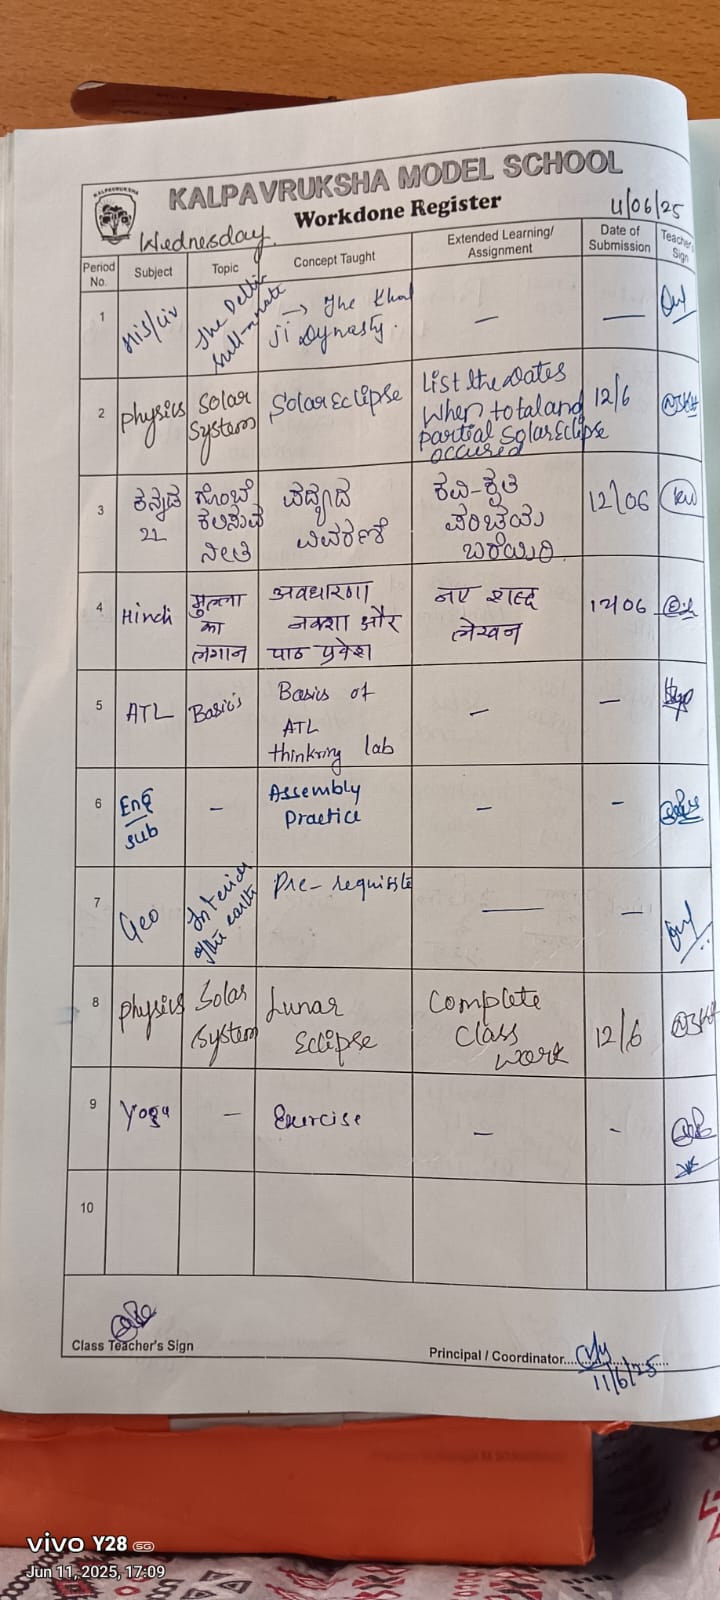 KALPAVRUKSHA
KALPAVRUKSHA MODEL SCHOOL
Workdone Register
11/06/25
Wednesday
Period No. Subject Topic Concept Taught Extended Learning/ Assignment Date of Submission Teacher's Sign
1 His/Civ The Delhi → The Khal — —
ji Dynasty.
2 Physics Solar System Solar Eclipse List the Dates 12/6
when total and
partial Solar Eclipse
occured
3 ಕನ್ನಡ ಗೊಂಬೆ ಪದ್ಯದ ಕವಿ-ಕೃತಿ 12/06
2L ಕಲಿಸುವ ವಿವರಣೆ ಪರಿಚಯ
ನೀತಿ ಬರೆಯಿರಿ.
4 Hindi मुल्ला अवधारणा नए शब्द 12/06
का नक्शा और लेखन
लगान पाठ प्रवेश
5 ATL Basics Basics of — —
ATL
thinkring lab
6 Eng – Assembly – –
sub Practice
7 Geo Interior Pre-requisite — –
of the earth
8 Physics Solar Lunar Complete 12/6
System Eclipse Class
work
9 Yoga – Exercise – –
10
Class Teacher's Sign
Principal / Coordinator
11/6/25
vivo Y28 5G
Jun 11, 2025, 17:09